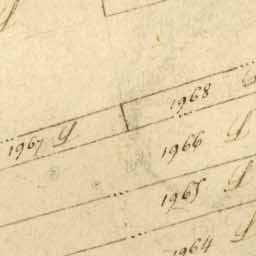 1968
1967 G
1966 G
1965 G
1964 G